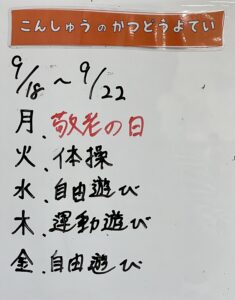 こんしゅうのかつどうよてい
9/18～9/22
月、敬老の日
火、体操
水、自由遊び
木、運動遊び
金、自由遊び